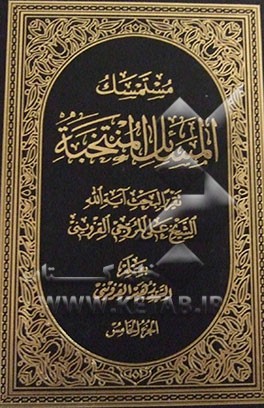 مستمسك
المسائل المنتخبة
تقرير البحث آية الله
الشيخ علي المروجي القزويني
بقلم
السيد
القزويني
WWW.KETAB.IR
الجزء الخامس